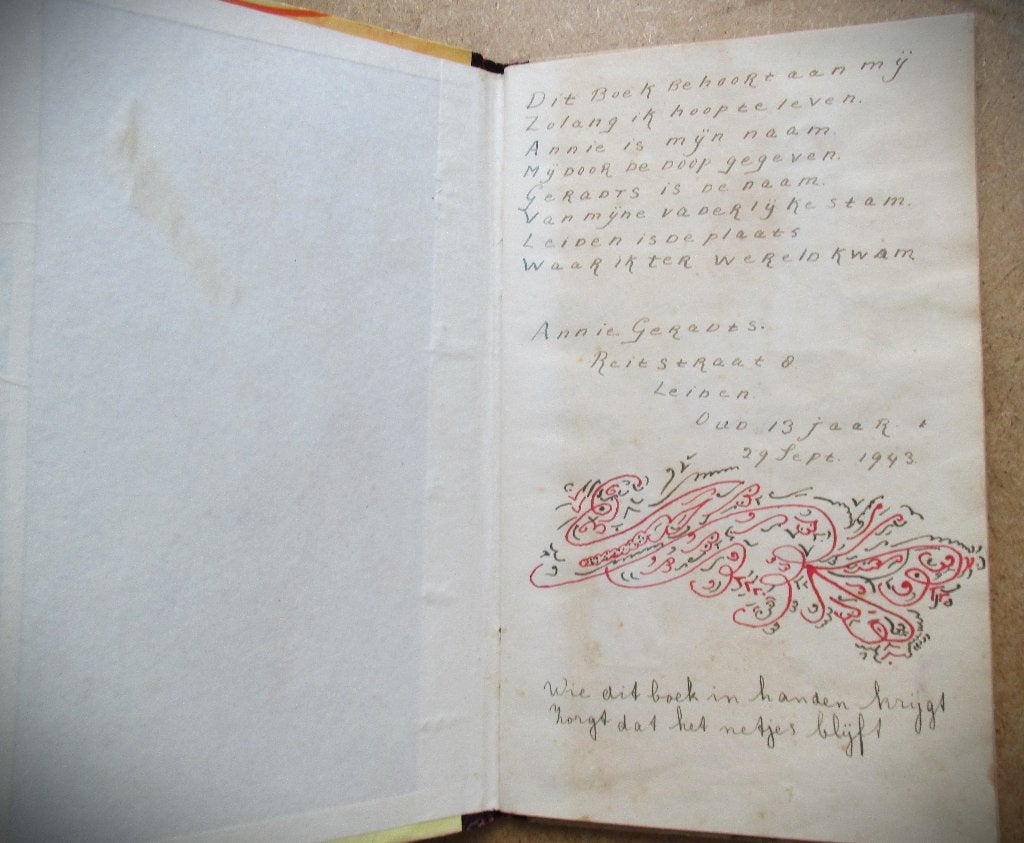 Dit Boek Behoort aan mij
Zolang ik hoop te leven.
Annie is mijn naam.
Mij door de doop gegeven.
Geradts is de naam.
Van mijne vaderlijke stam.
Leiden is de plaats
Waar ik ter wereld kwam
Annie Geradts.
Reitstraat 8
Leiden.
Oud 13 jaar.
29 Sept. 1943.
Wie dit boek in handen krijgt
Zorgt dat het netjes blijft